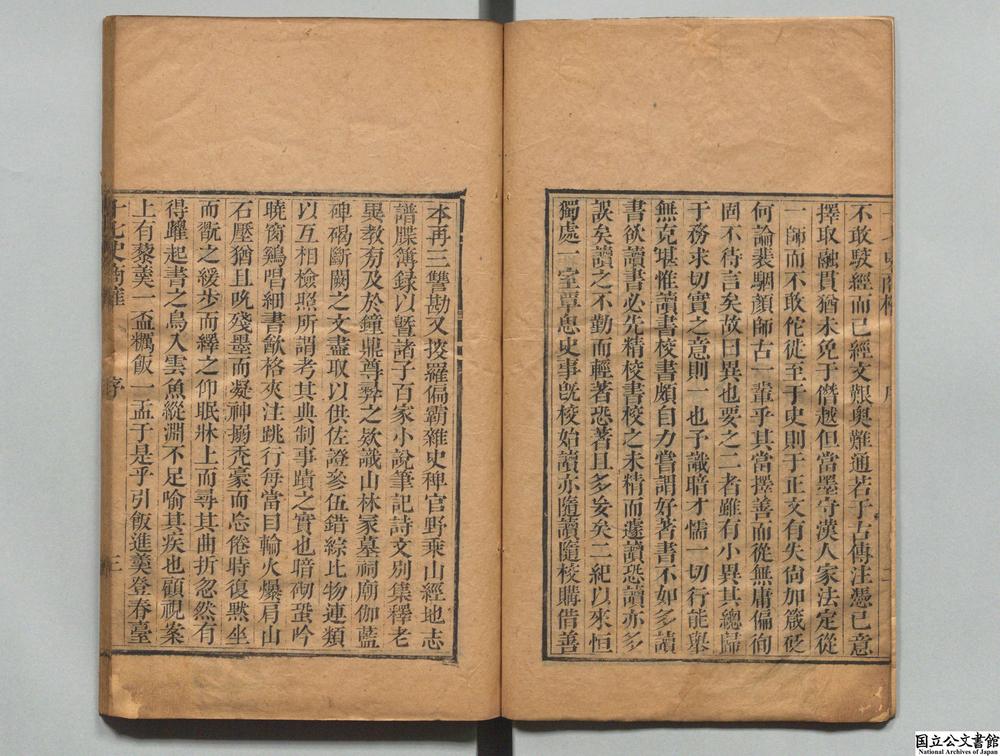 不敢駁經而已經文艱奧難通若于古傳注憑已意
擇取融貫猶未免于僭越但當墨守漢人家法定從
一師而不敢佗徙至于史則于正文有失尙加箴砭
何論裴駰顏師古一輩乎其當擇善而從無庸偏徇
固不待言矣故曰異也要之二者雖有小異其總歸
于務求切實之意則一也予識暗才懦一切行能舉
無克堪惟讀書校書頗自力嘗謂好著書不如多讀
書欲讀書必先精校書校之未精而遽讀恐讀亦多
誤矣讀之不勤而輕著恐著且多妄矣二紀以來恒
獨處一室覃思史事旣校始讀亦隨讀隨校購借善
本再三讐勘又搜羅偏霸雜史稗官野乘山經地志
譜牒簿録以曁諸子百家小說筆記詩文別集釋老
異教旁及於鐘鼎尊彝之款識山林冢墓祠廟伽藍
碑碣斷闕之文盡取以供佐證參伍錯綜比物連類
以互相檢照所謂考其典制事蹟之實也暗砌蛩吟
曉窗鷄唱細書飲格夾注跳行每當目輪火爆肩山
石壓猶且吮殘墨而凝神搦禿豪而忘倦時復默坐
而翫之緩步而繹之仰眠牀上而尋其曲折忽然有
得躍起書之鳥入雲魚縱淵不足喻其疾也顧視案
上有藜羹一盃糲飯一盂于是乎引飯進羹登春臺
十七史商榷
序
三
国立公文書館
National Archives of Japan